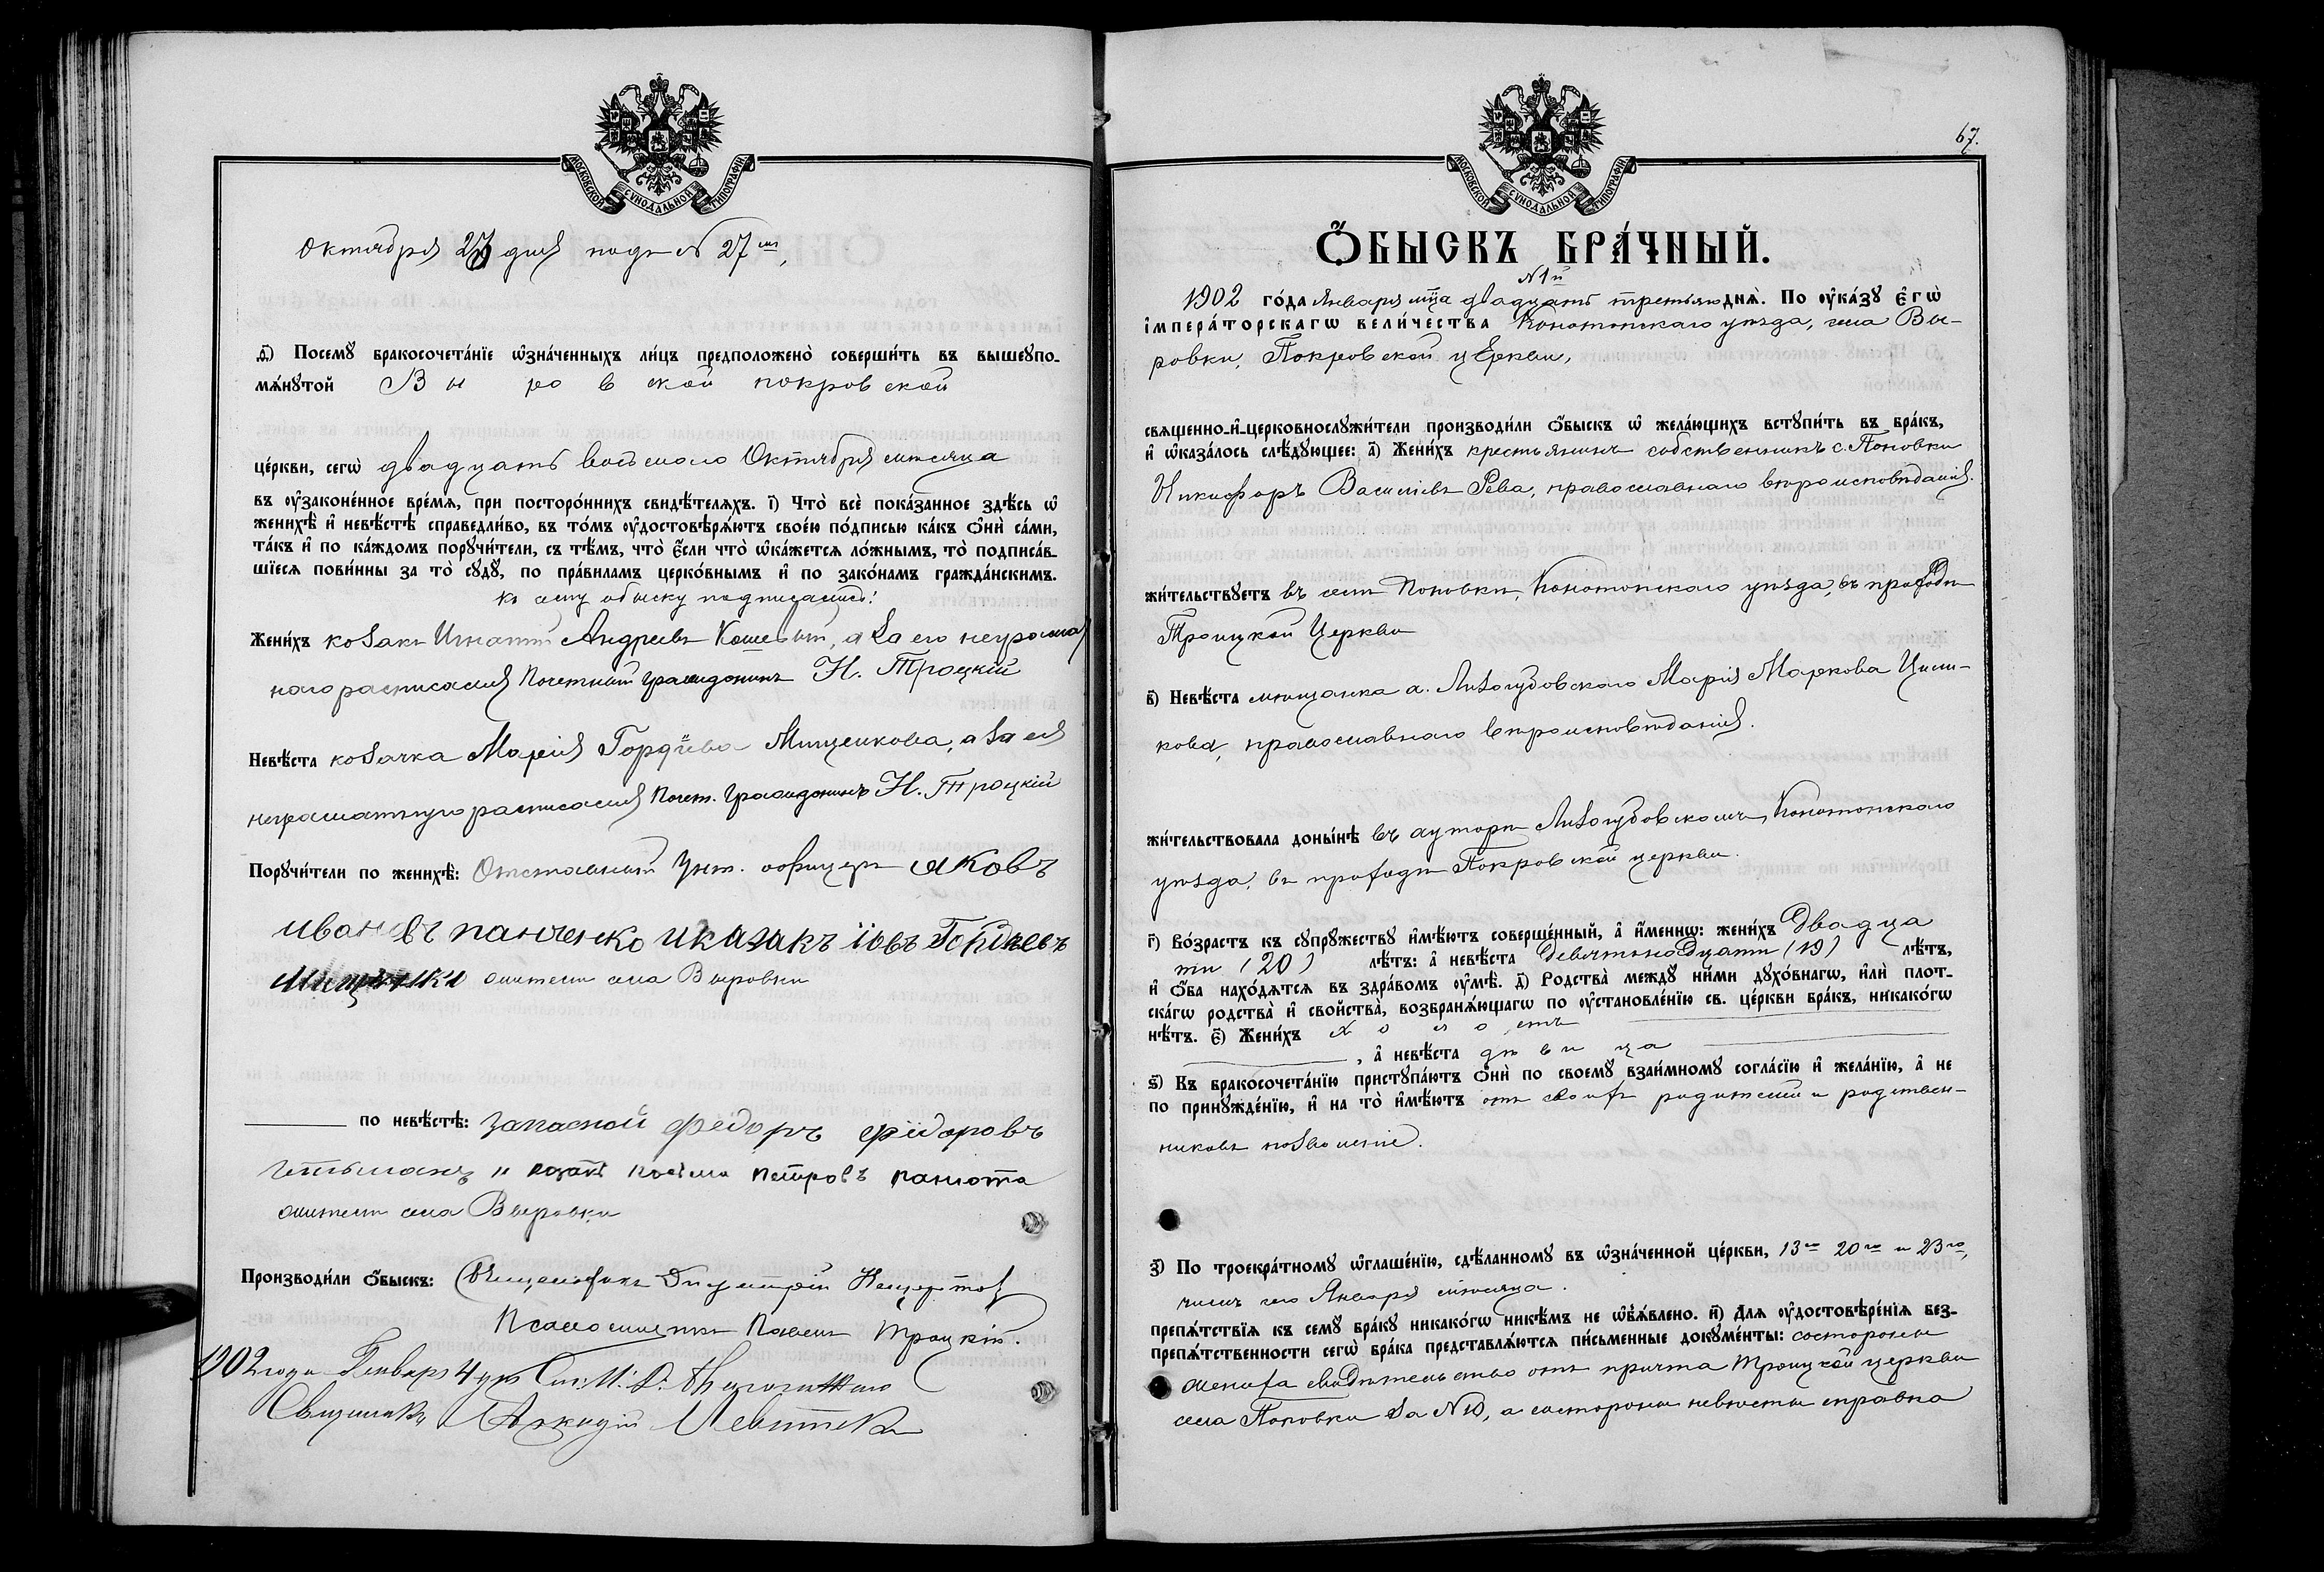 МОСКОВСКОЙ СѴНОДАЛЬНОЙ ТИПОГРАФІИ
Октября 23 дня подъ N 27мъ,
д҃і) Посемꙋ бракосочета́нїе ѡ҆зна́ченныхъ ли́цъ предположено̀ соверши́ть въ вышеꙋпо-
мѧ́нꙋтой Выровской покровской
це́ркви, сегѡ̀ двадцать восьмого Октября мѣсяца
въ ᲂу҆законе́нное вре́мѧ, при посторо́ннихъ свидѣ́телѧхъ. і҃) Что̀ всѐ пока́занное здѣ́сь ѡ҆
женихѣ̀ и҆ невѣ́стѣ справедли́во, въ то́мъ ᲂу҆достовѣрѧ́ютъ свое́ю по́дписью ка́къ ѻ҆нѝ са́ми,
та́къ и҆ по ка́ждомъ порꙋчи́тели, съ тѣ́мъ, что̀ є҆́сли что̀ ѡ҆ка́жетсѧ ло́жнымъ, то̀ подписа́в-
шїесѧ пови́нны за то̀ сꙋдꙋ̀, по пра́виламъ церко́внымъ и҆ по зако́намъ гражда́нскимъ.
Къ сему обыску подписались:
Жени́хъ козакъ Игнатій Андреевъ Кошевый, а за его неграмот
наго расписался Почетный гражданинъ Н. Троцкій
Невѣ́ста козачка Марія Гордіева Мищенкова, а за ея
неграмотную расписался Почет. Гражданинъ Н. Троцкій
Порꙋчи́тели по женихѣ̀: Отставный Унт. офицеръ яковъ
ивановъ панченко и казакъ іовъ Гордѣевъ
Мищенко жители села Выровки
по невѣ́стѣ: запасной федоръ фіодоровъ
гетьманъ и козакъ Косьма петровъ панюта
жители села Выровки
Производи́ли ѻ҆́быскъ: Священникъ Димитрій
Псаломщикъ Павелъ Троцкій.
1902 года Января 4 дня
Священникъ Аркадій Левитскі
67.
МОСКОВСКОЙ СѴНОДАЛЬНОЙ ТИПОГРАФІИ
Ѻ҆́БЫСКЪ БРА́ЧНЫЙ.
N 1й
1902 го́да Января мца двадцать третьяго днѧ̀. По ᲂу҆ка́зꙋ є҆гѡ̀
і҆мпера́торскагѡ вели́чества Конотопскаго уѣзда, села Вы-
ровки, Покровской цЕркви,
свѧщенно-и҆-церковнослꙋжи́тели производи́ли ѻ҆́быскъ ѡ҆ жела́ющихъ встꙋпи́ть въ бра́къ,
и҆ ѡ҆каза́лось слѣ́дꙋющее: а҃) Жени́хъ крестьянинъ собственникъ с. Поповки
Никифоръ Васильевъ Рева, православнаго вѣроисповѣданія.
жи́тельствꙋетъ въ селѣ Поповки, Конотопскаго уѣзда, въ приходѣ
Троицкой Церкви
в҃) Невѣ́ста мѣщанка х. Лизогубовскаго Марія Маркова
кова, православнаго вѣроисповѣданія.
жи́тельствовала доны́нѣ въ хуторѣ Лизогубовскомъ, Конотопскаго
уѣзда, въ приходѣ Покровской церкви.
г҃) Во́зрастъ къ сꙋпрꙋ́жествꙋ и҆мѣ́ютъ соверше́нный, а҆ и҆́меннѡ: жени́хъ Двадца
ти (20) лѣ́тъ: а҆ невѣ́ста Девятьнадцати (19) лѣ́тъ,
и҆ ѻ҆́ба нахо́дѧтсѧ въ здра́вомъ ᲂу҆мѣ̀. д҃) Родства̀ междꙋ̀ ни́ми дꙋхо́внагѡ, и҆лѝ плот-
ска́гѡ родства̀ и҆ свойства̀, возбранѧ́ющагѡ по ᲂу҆становле́нїю св. це́ркви бра́къ, никако́гѡ
нѣ́тъ. є҃) Жени́хъ холостъ
, а҆ невѣ́ста дѣвица
ѕ҃) Къ бракосочета́нїю пристꙋпа́ютъ ѻ҆нѝ по своемꙋ̀ взаи́мномꙋ согла́сїю и҆ жела́нїю, а҆ не
по принꙋжде́нїю, и҆ на то̀ и҆мѣ́ютъ отъ своихъ родителей и родствен-
никовъ позволеніе.
з҃) По троекра́тномꙋ ѡ҆глаше́нїю, сдѣ́ланномꙋ въ ѡ҆зна́ченной це́ркви, 13го 20го и 23го,
числъ сего Января мѣсяца.
препѧ́тствїѧ къ семꙋ̀ бра́кꙋ никако́гѡ никѣ́мъ не ѡ҆б̾ѧ́влено. и҃) Длѧ ᲂу҆достовѣре́нїѧ без-
препѧ́тственности сегѡ̀ бра́ка представлѧ́ютсѧ пи́сьменные докꙋме́нты: состороны
жениха свидѣтельство отъ причта Троицкой церкви
села Поповки за N 10, а состороны невѣсты справка